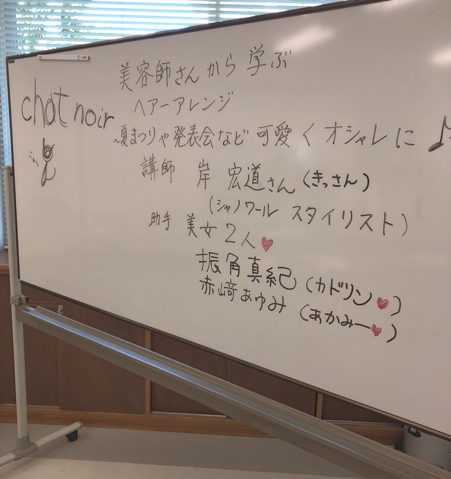 美容師さんから学ぶ
ヘアーアレンジ
chat noir
~夏まつりや発表会など可愛くオシャレに♪
講師 岸 宏道さん(きっさん)
(シャノワール スタイリスト)
助手 美女2人♥
振角真紀(カドリン♥)
赤﨑あゆみ(あかみー♥)